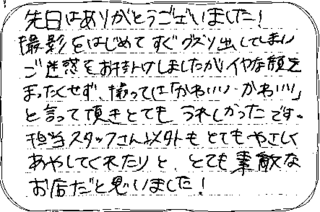 先日はありがとうございました!
撮影をはじめてすぐグズリ出してしまい
ご迷惑をおかけしましたがイヤな顔を
まったくせず、撮っては「かわいい・かわいい」
と言って頂きとてもうれしかったです。
担当スタッフさん以外もとてもやさしく
あやしてくれたりと、とても素敵な
お店だと思いました!